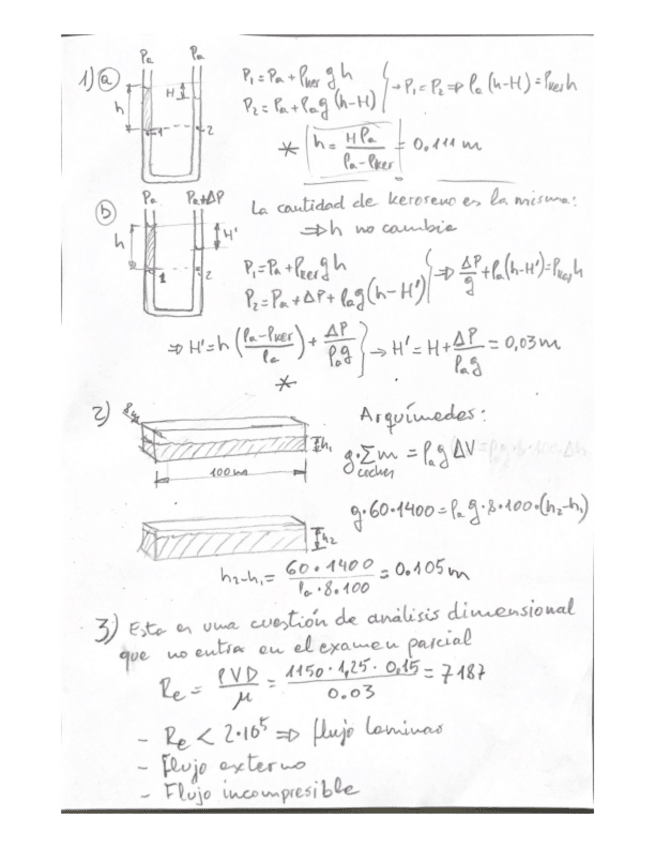 Pa Pa
1) a
h H 1 2
P₁ = Pa + ρker g h
P₂ = Pa + ρa g (h-H) } → P₁ = P₂ ⇒ ρa (h-H) = ρker h
* h = Hρa / (ρa - ρker) = 0,111 m
b)
Pa Pa+ΔP
h H' 1 2
La cantidad de keroseno es la misma:
⇒ h no cambia
P₁ = Pa + ρker g h
P₂ = Pa + ΔP + ρa g (h-H') } ⇒ ΔP/g + ρa (h-H') = ρker h
⇒ H' = h ((ρa - ρker)/ρa) + ΔP/(ρa g) } → H' = H + ΔP/(ρa g) = 0,03 m
*
2) 8 m
h₁
100 m
Arquímedes:
g · Σ m = ρa g ΔV
coches
g · 60 · 1400 = ρa g · 8 · 100 · (h₂-h₁)
h₂
h₂-h₁ = (60 · 1400)/(ρa · 8 · 100) = 0.105 m
3) Esta es una cuestión de análisis dimensional
que no entra en el examen parcial
Re = ρVD/μ = (1150 · 1,25 · 0,15)/0.03 = 7187
- Re < 2·10⁵ ⇒ flujo laminar
- Flujo externo
- Flujo incompresible